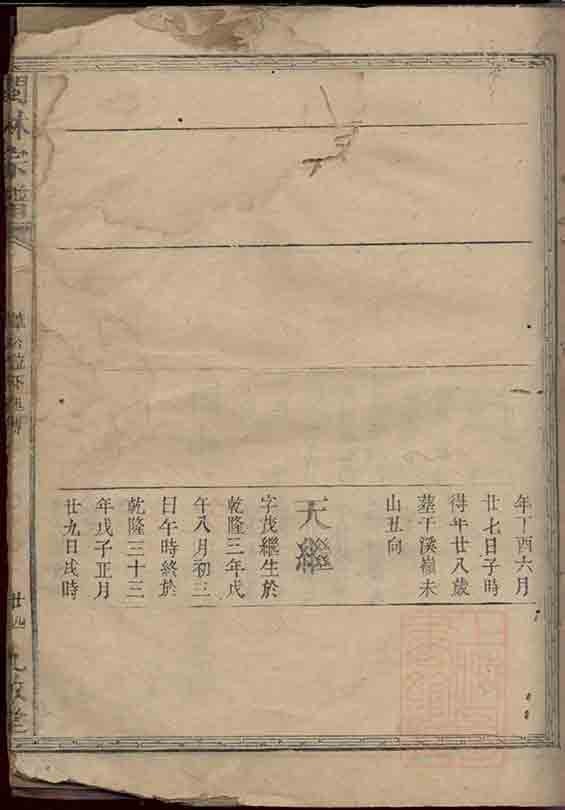 年丁酉六月
廿七日子時
得年廿八歲
墓下溪嶺未
山丑向
天繼
字茂繼生於
乾隆三年戊
午八月初三
日午時終於
乾隆三十三
年戊子正月
廿九日戌時
閩林宗譜